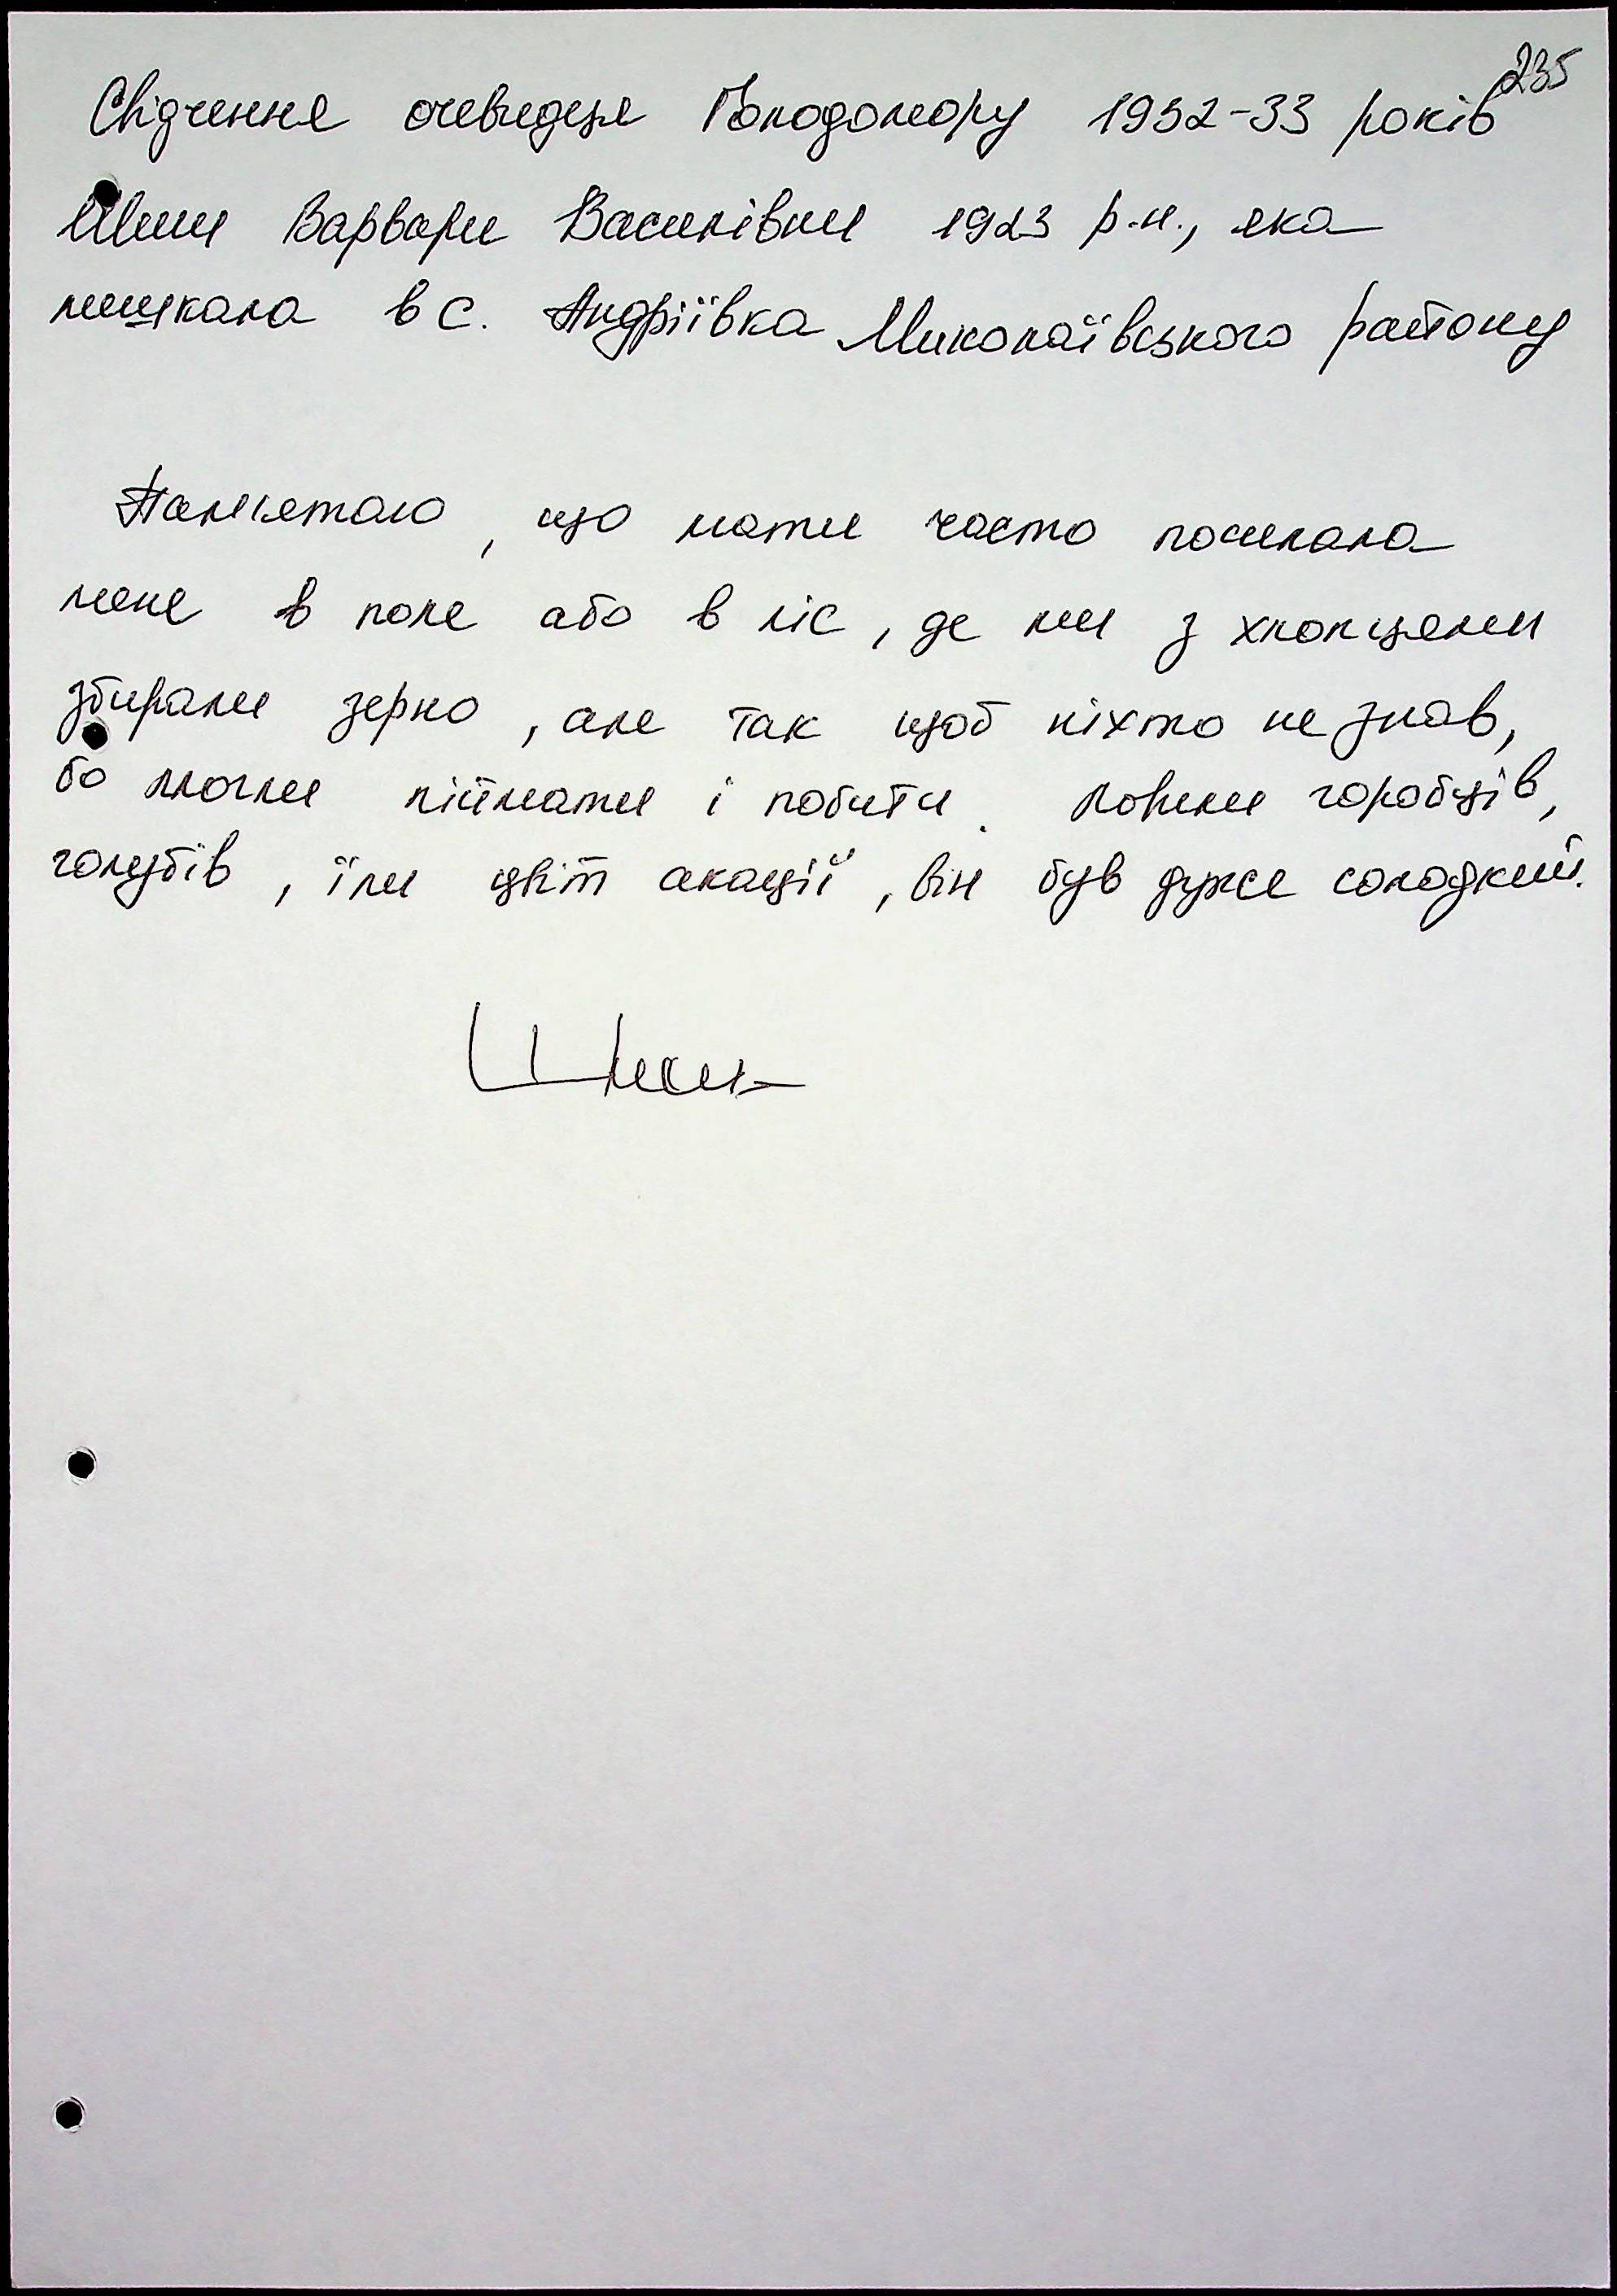 235
Свідчення очевидця Голодомору 1932-33 років
Варвари Василівни 1923 р.н., яка
мешкала в с. Андріївка Миколаївського району
Пам'ятаю, що мати часто посилала
мене в поле або в ліс, де ми з хлопцями
збирали зерно, але так щоб ніхто не знав,
бо могли піймати і побити. Ловили горобців,
голубів, їли цвіт акації, він був дуже солодкий.